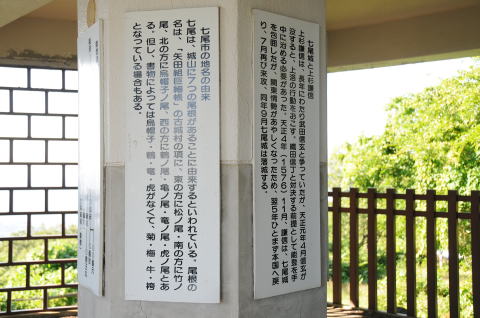 七尾城と上杉謙信
上杉謙信は、長年にわたり武田信玄と争っていたが、天正元年4月信玄が
没すると、上洛の行動をおこす。織田信長と対決する前提として能登を手
中に治める必要があった。天正4年(1576)11月、謙信は、七尾城
を包囲したが、関東情勢があやしくなったため、翌5年ひとまず本国へ戻
り、7月再び来攻、同年9月七尾城は落城する。
七尾市の地名の由来
七尾は、城山に7つの尾根があることに由来するといわれている。尾根の
名は、「矢田組巨細帳」の古城村の項に、東の方に松ノ尾・南の方に竹ノ
尾、北の方に烏帽子ノ尾、西の方に鶴ノ尾・亀ノ尾・竜ノ尾・虎ノ尾とあ
る。但し、書物によっては烏帽子・鶴・竜・虎がなくて、菊・梅・牛・袴
となっている場合もある。